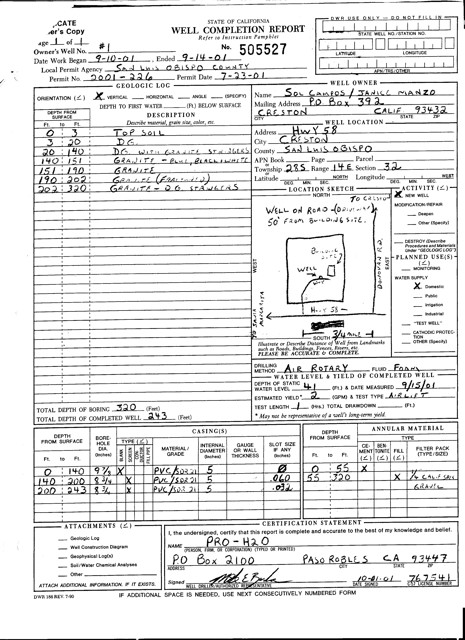 STATE OF CALIFORNIA
WELL COMPLETION REPORT
Refer to Instruction Pamphlet
No. 505527
Page 1 of 1
Owner's Well No. #1
Date Work Began 9-10-01 Ended 9-14-01
Local Permit Agency SAN LUIS OBISPO COUNTY
Permit No. 2001-226 Permit Date 7-23-01
DWR USE ONLY — DO NOT FILL IN
STATE WELL NO./STATION NO.
LATITUDE LONGITUDE
APN/TRS/OTHER
GEOLOGIC LOG
ORIENTATION (∠) X VERTICAL HORIZONTAL ANGLE (SPECIFY)
DEPTH TO FIRST WATER (Ft.) BELOW SURFACE
DEPTH FROM SURFACE
Ft. to Ft.
DESCRIPTION
Describe material, grain size, color, etc.
0 3 TOP SOIL
3 20 D.G.
20 140 D.G. WITH GRANITE STRINGERS
140 151 GRANITE - BLUE, BLACK, WHITE
151 190 GRANITE
190 202 GRANITE (FRACTURED)
202 320 GRANITE - D.G. STRINGERS
TOTAL DEPTH OF BORING 320 (Feet)
TOTAL DEPTH OF COMPLETED WELL 243 (Feet)
WELL OWNER
Name SOL CAMPOS / JANICE MANZO
Mailing Address PO BOX 392
CRESTON CALIF 93432
CITY STATE ZIP
WELL LOCATION
Address HWY 58
City CRESTON
County SAN LUIS OBISPO
APN Book Page Parcel
Township 28S Range 14E Section 32
Latitude NORTH Longitude WEST
DEG. MIN. SEC. DEG. MIN. SEC.
LOCATION SKETCH
NORTH
TO CRESTON
WELL ON ROAD (DRIVEWAY)
50' FROM BUILDING SITE.
BUILDING SITE
WELL
DONOVAN RD
WEST
EAST
TO SANTA MARGARITA
HWY 58
3/4 MILE
SOUTH
Illustrate or Describe Distance of Well from Landmarks
such as Roads, Buildings, Fences, Rivers, etc.
PLEASE BE ACCURATE & COMPLETE.
ACTIVITY (∠)
X NEW WELL
MODIFICATION/REPAIR
Deepen
Other (Specify)
DESTROY (Describe
Procedures and Materials
Under "GEOLOGIC LOG")
PLANNED USE(S)
(∠)
MONITORING
WATER SUPPLY
X Domestic
Public
Irrigation
Industrial
"TEST WELL"
CATHODIC PROTECTION
OTHER (Specify)
DRILLING METHOD AIR ROTARY FLUID FOAM
WATER LEVEL & YIELD OF COMPLETED WELL
DEPTH OF STATIC WATER LEVEL 41 (Ft.) & DATE MEASURED 9/15/01
ESTIMATED YIELD* 2 (GPM) & TEST TYPE AIRLIFT
TEST LENGTH 1 (Hrs.) TOTAL DRAWDOWN (Ft.)
* May not be representative of a well's long-term yield.
DEPTH FROM SURFACE
Ft. to Ft.
BORE-HOLE DIA. (Inches)
CASING(S)
TYPE (∠)
BLANK SCREEN CONDUCTOR FILL PIPE
MATERIAL/GRADE
INTERNAL DIAMETER (Inches)
GAUGE OR WALL THICKNESS
SLOT SIZE IF ANY (Inches)
0 140 9 7/8 X PVC/SDR21 5 Ø
140 200 8 3/4 X PVC/SDR21 5 .060
200 243 8 3/4 X PVC/SDR21 5 .032
DEPTH FROM SURFACE
Ft. to Ft.
ANNULAR MATERIAL
TYPE
CEMENT (∠) BENTONITE (∠) FILL (∠) FILTER PACK (TYPE/SIZE)
0 55 X
55 320 X
GRAVEL
ATTACHMENTS (∠)
Geologic Log
Well Construction Diagram
Geophysical Log(s)
Soil/Water Chemical Analyses
Other
ATTACH ADDITIONAL INFORMATION. IF IT EXISTS.
CERTIFICATION STATEMENT
I, the undersigned, certify that this report is complete and accurate to the best of my knowledge and belief.
NAME PRO-H2O
(PERSON, FIRM, OR CORPORATION) (TYPED OR PRINTED)
PO BOX 2100 PASO ROBLES CA 93447
ADDRESS CITY STATE ZIP
Signed 10-01-01 767541
WELL DRILLER/AUTHORIZED REPRESENTATIVE DATE SIGNED C-57 LICENSE NUMBER
DWR 188 REV. 7-90
IF ADDITIONAL SPACE IS NEEDED, USE NEXT CONSECUTIVELY NUMBERED FORM